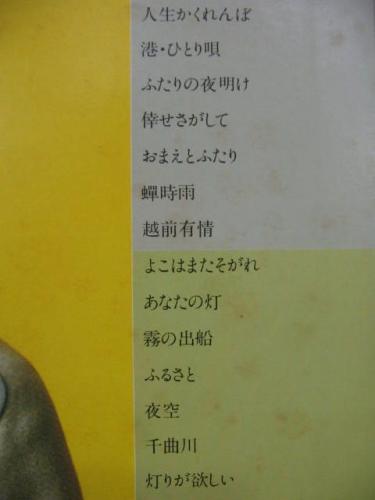 人生かくれんぼ
港・ひとり唄
ふたりの夜明け
倖せさがして
おまえとふたり
蟬時雨
越前有情
よこはまたそがれ
あなたの灯
霧の出船
ふるさと
夜空
千曲川
灯りが欲しい